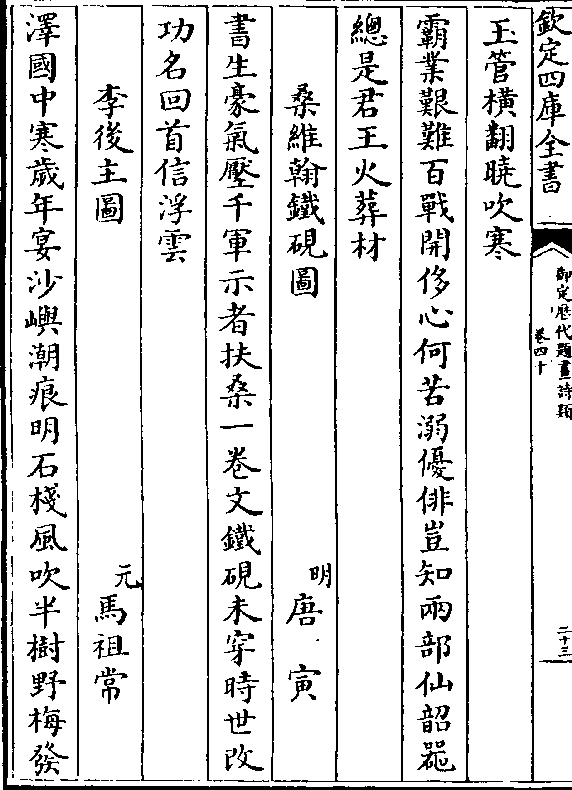 欽定四庫全書
御定歷代題畫詩類
卷四十
二十三
玉管橫翻曉吹寒
霸業艱難百戰開侈心何苦溺優俳豈知兩部仙韶器
總是君王火葬材
桑維翰鐵硯圖
明唐寅
書生豪氣壓千軍示者扶桑一卷文鐵硯未穿時世改
功名回首信浮雲
李後主圖
元馬祖常
澤國中寒歲年宴沙嶼潮痕明石棧風吹半樹野梅發